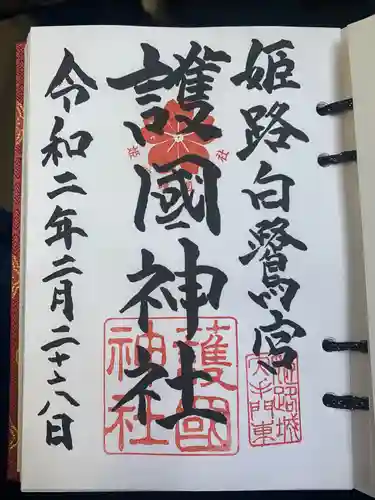 姫路白鷺宮
護國神社
令和二年二月二十八日
護國
神社
姫路城
大手門東